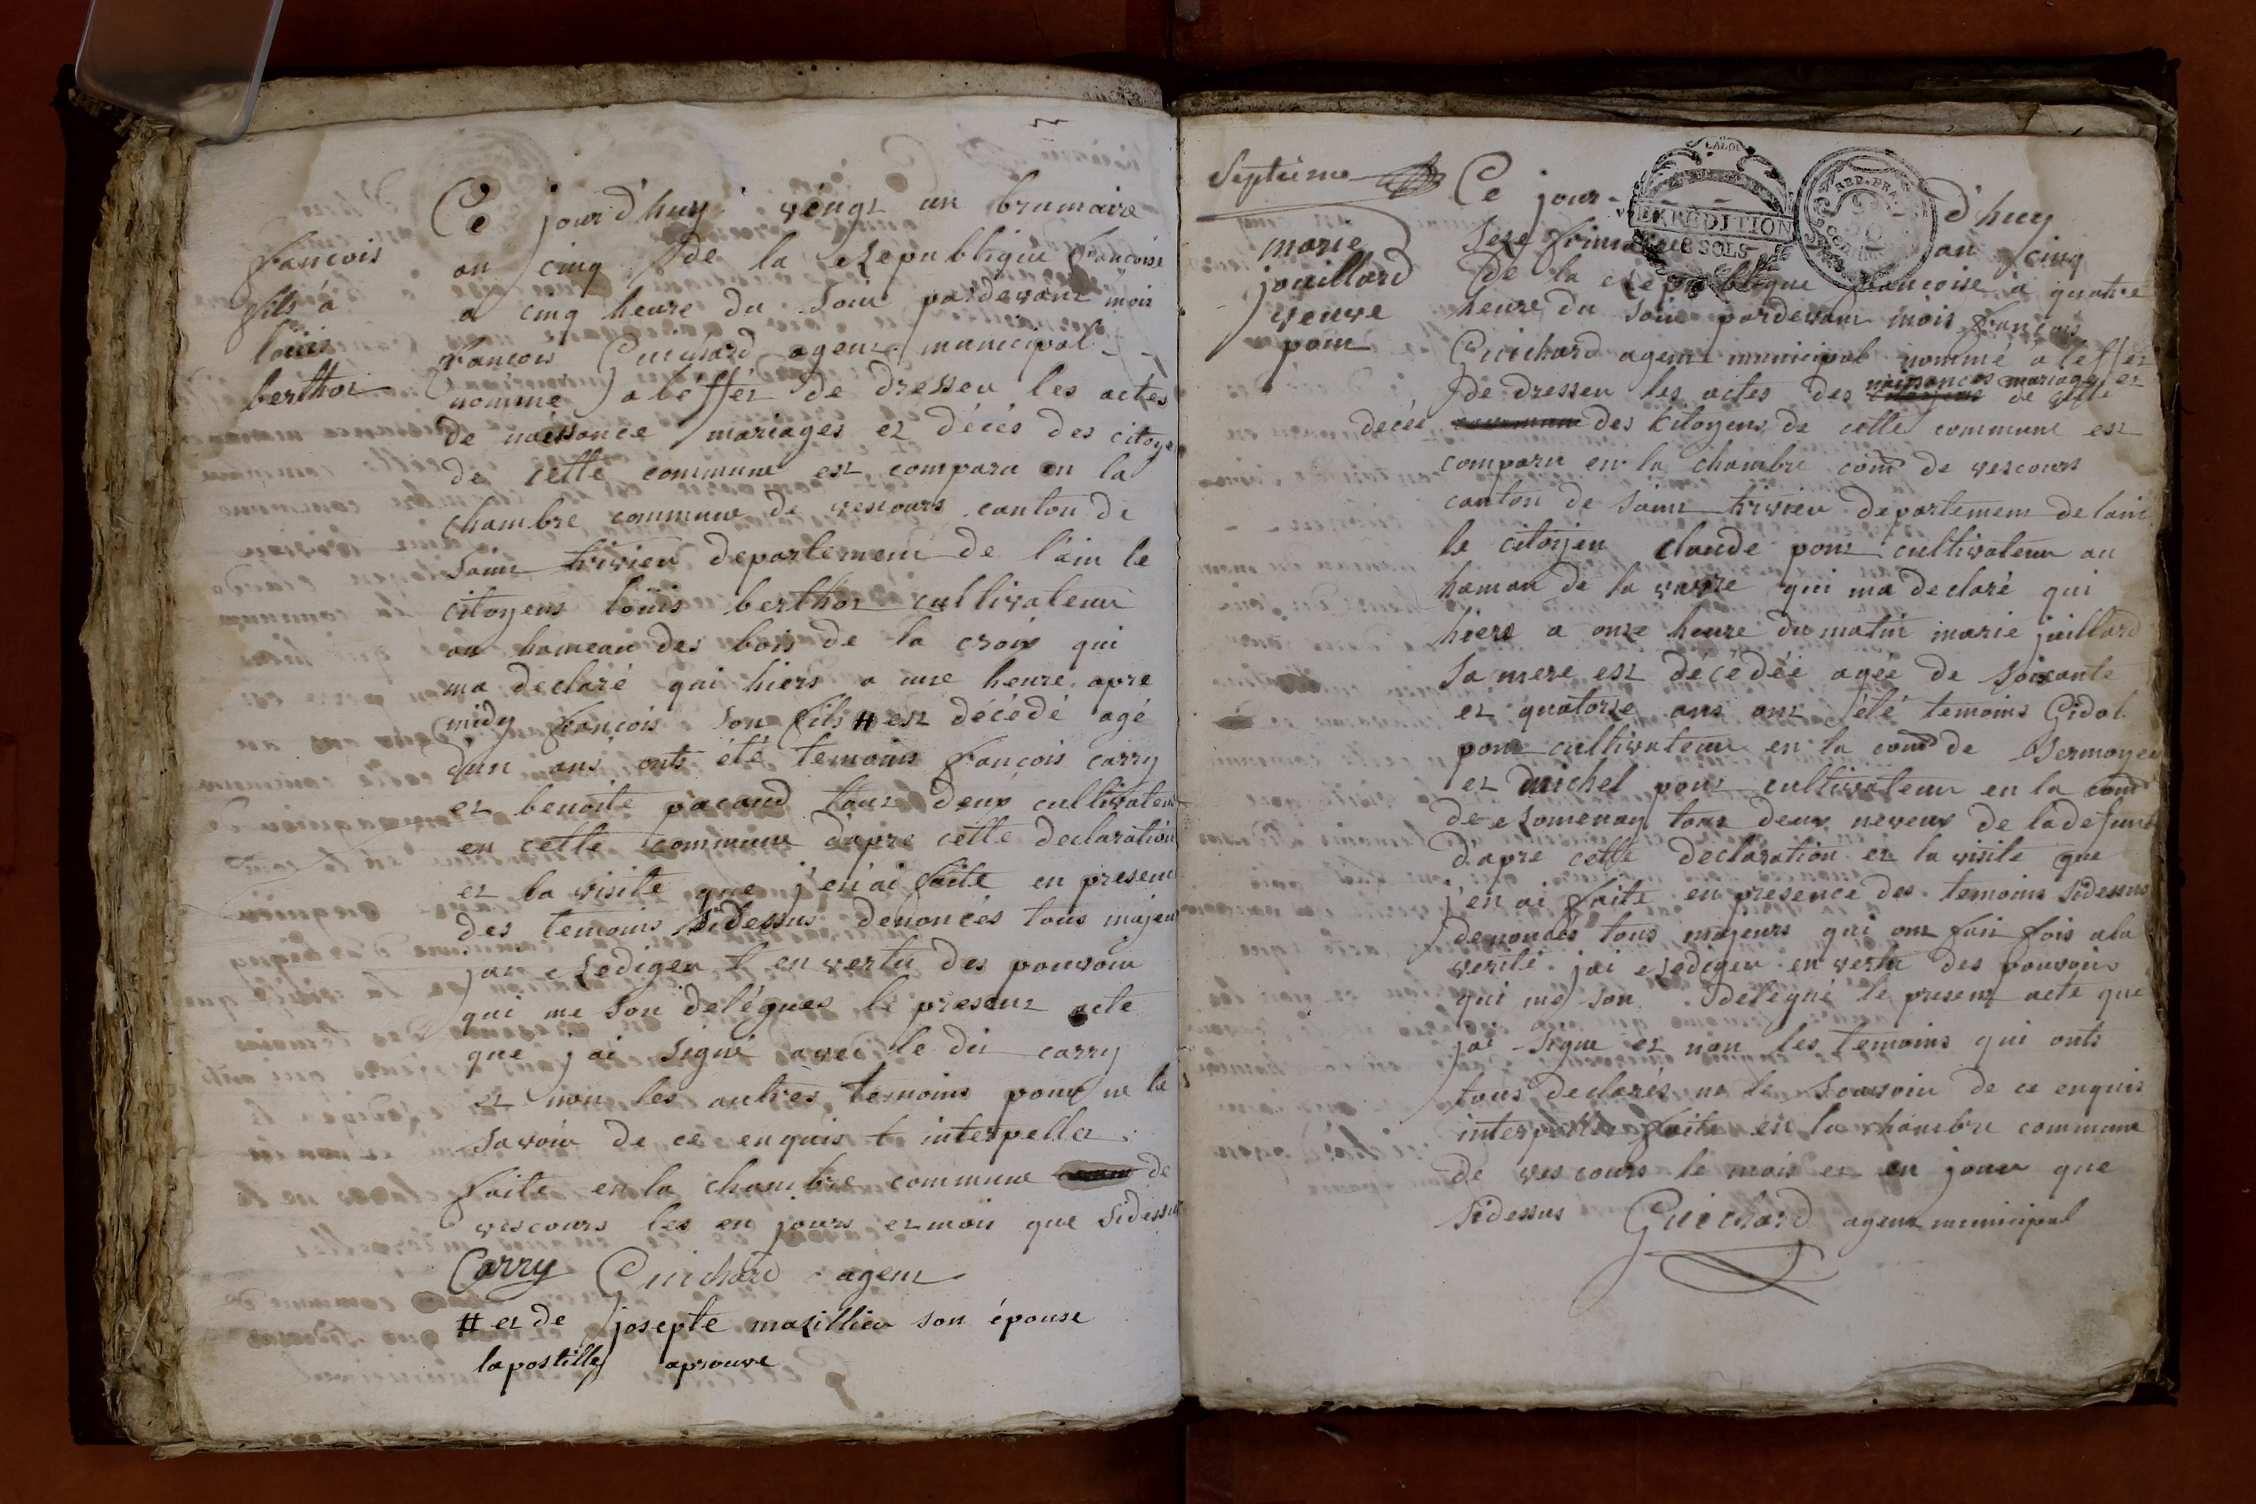 françois
fils à
loüis
berthot
Ce jourd'huy vingt un brumaire
an cinq de la Republique françoise
a cinq heure du soir pardevant moi
françois Guichard agent municipal
nommé a l'éffet de dresser les actes
de naissance mariages et décés des citoye
de cette commune est comparu en la
chambre commune de vescours canton de
saint trivier departement de l'ain le
citoyens loüis berthot cultivateur
au hameau des bois de la croix qui
ma declaré qui hiers a une heure apre
midy françois son fils # est décédé agé
d'un ans onts été temoins françois carry
et benoite pacand tout deux cultivateur
en cette commune d'apre cette declaration
et la visite que j'en ai faite en presence
des temoins sidessus denoncés tous majeur
jan Rediger t en vertu des pouvoir
qui me son delégues le present acte
que j'ai signé avec le dit carry
et non les autres temoins pour ne le
savoir de ce enquis t interpeller
faite en la chambre commune de
vescours les en jours et mois que sidessus
Carry Guichard agent
# et de josepte mazillier son épouse
lapostille aprouve
Septieme
marie
jaillard
veuve
pont
Ce jour-d'huy
LALOI
EXPEDITION
8 SOLS
REP. FRA
Seze frimaire an cinq
de la Republique francoise à quatre
heure du soir pardevant mois françois
Guichard agent municipal nommé a l'effet
de dresser les actes des naissances mariages et
décée des Citoyens de cette commune est
comparu en la chambre com de vescours
canton de saint trivier departement de lain
le citoyen claude pont cultivateur au
hamau de la varre qui ma declaré qui
hiere a onze heure du matin marie jaillard
sa mere est décédée agée de soixante
et quatorze ans ont été temoins Gidal
pont cultivateur en la com de Sermoyer
et michel pont cultivateur en la com
de Romenay tout deux neveux de ladefunt
d'apre cette declaration et la visite que
j'en ai faite en presence des temoins sidessus
denoncés tous majeurs qui ont fait fois a la
verité jai Rediger en vertu des pouvoir
qui me son delegué le present acte que
jai signe et non les temoins qui onts
tous declarés ne le savoir de ce enquis
interpeller faite en la chambre commune
de vescours le mois et en jour que
sidessus Guichard agent municipal